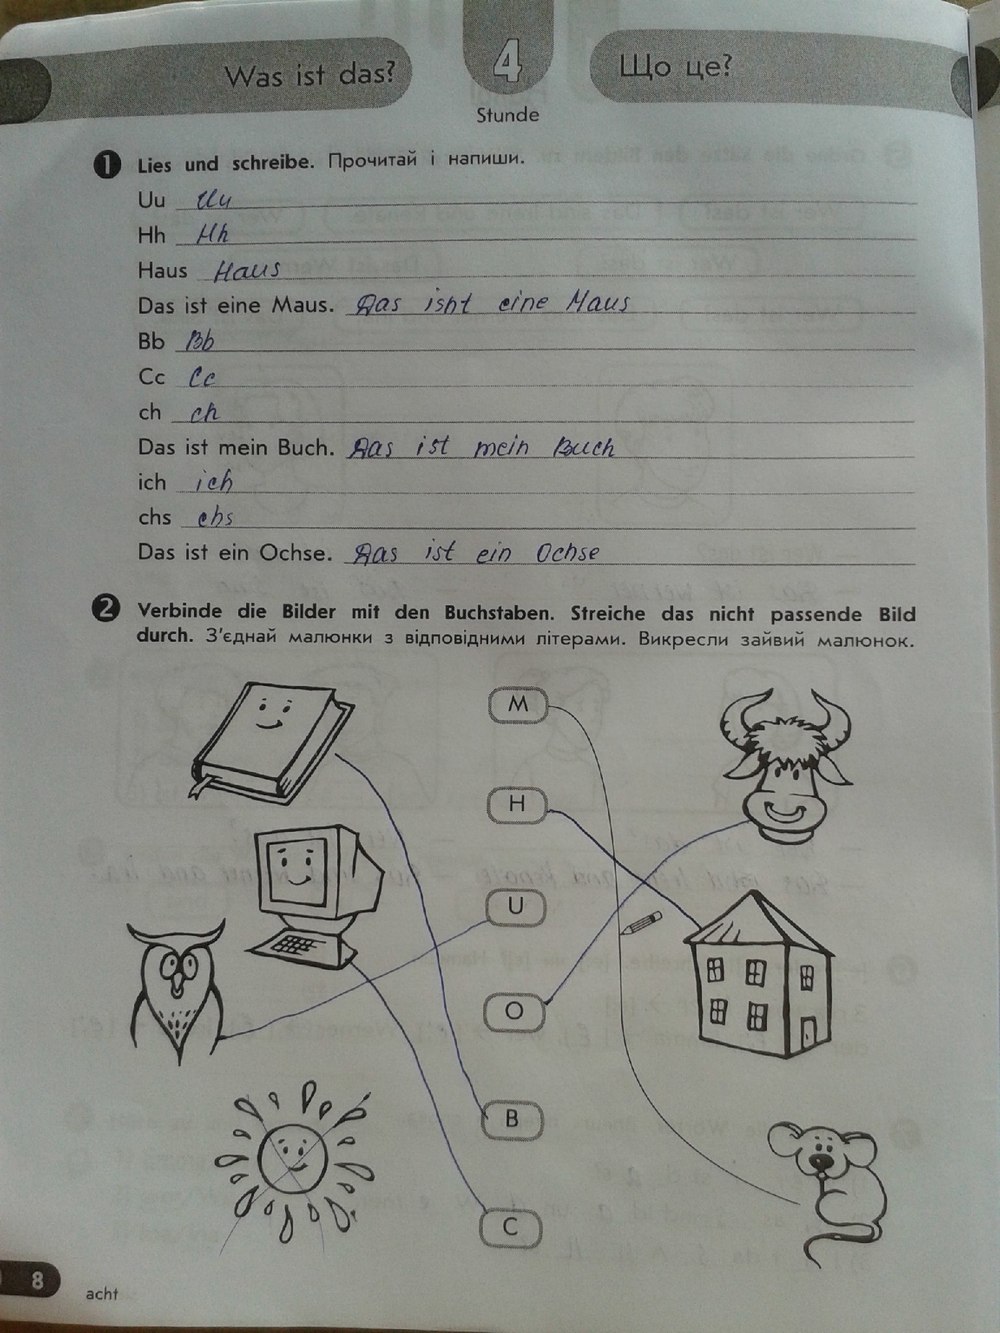 Was ist das?
4
Що це?
Stunde
1 Lies und schreibe. Прочитай і напиши.
Uu Uu
Hh Hh
Haus Haus
Das ist eine Maus. Das isht eine Maus
Bb Bb
Cc Cc
ch ch
Das ist mein Buch. Das ist mein Buch
ich ich
chs chs
Das ist ein Ochse. Das ist ein Ochse
2 Verbinde die Bilder mit den Buchstaben. Streiche das nicht passende Bild
durch. З'єднай малюнки з відповідними літерами. Викресли зайвий малюнок.
M
H
U
O
B
C
8
acht